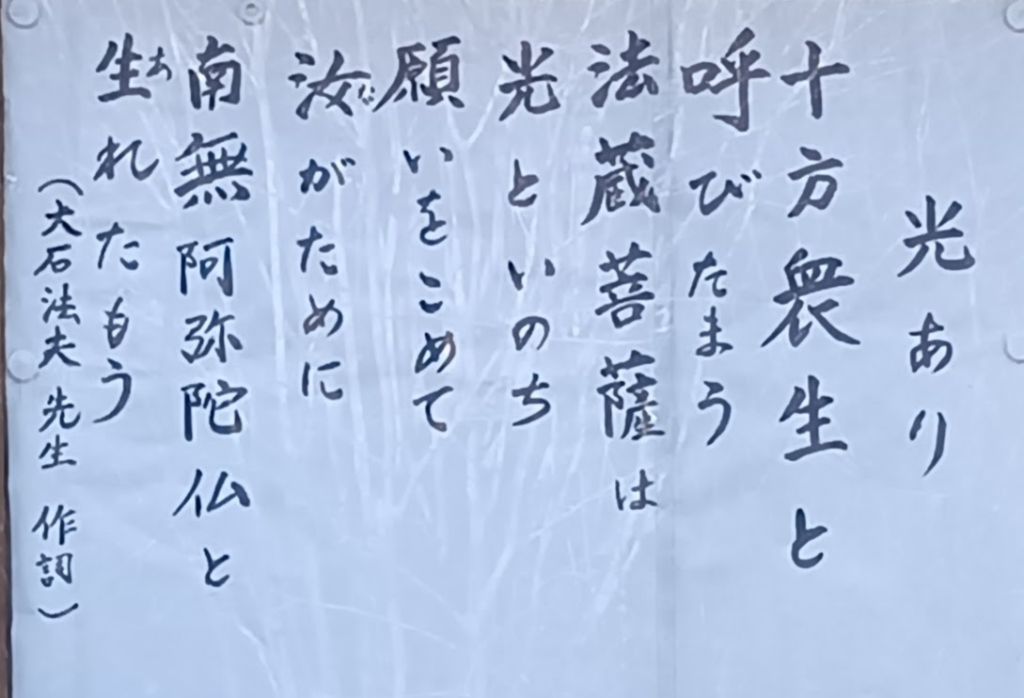 光あり
十方衆生と
呼びたまう
法蔵菩薩は
光といのち
願いをこめて
汝がために
南無阿弥陀仏と
生れたもう
(大石法夫先生 作詞)